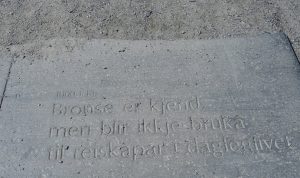 Bronse er kjend,
men blir ikkje bruka
til reiskapar i dagleglivet